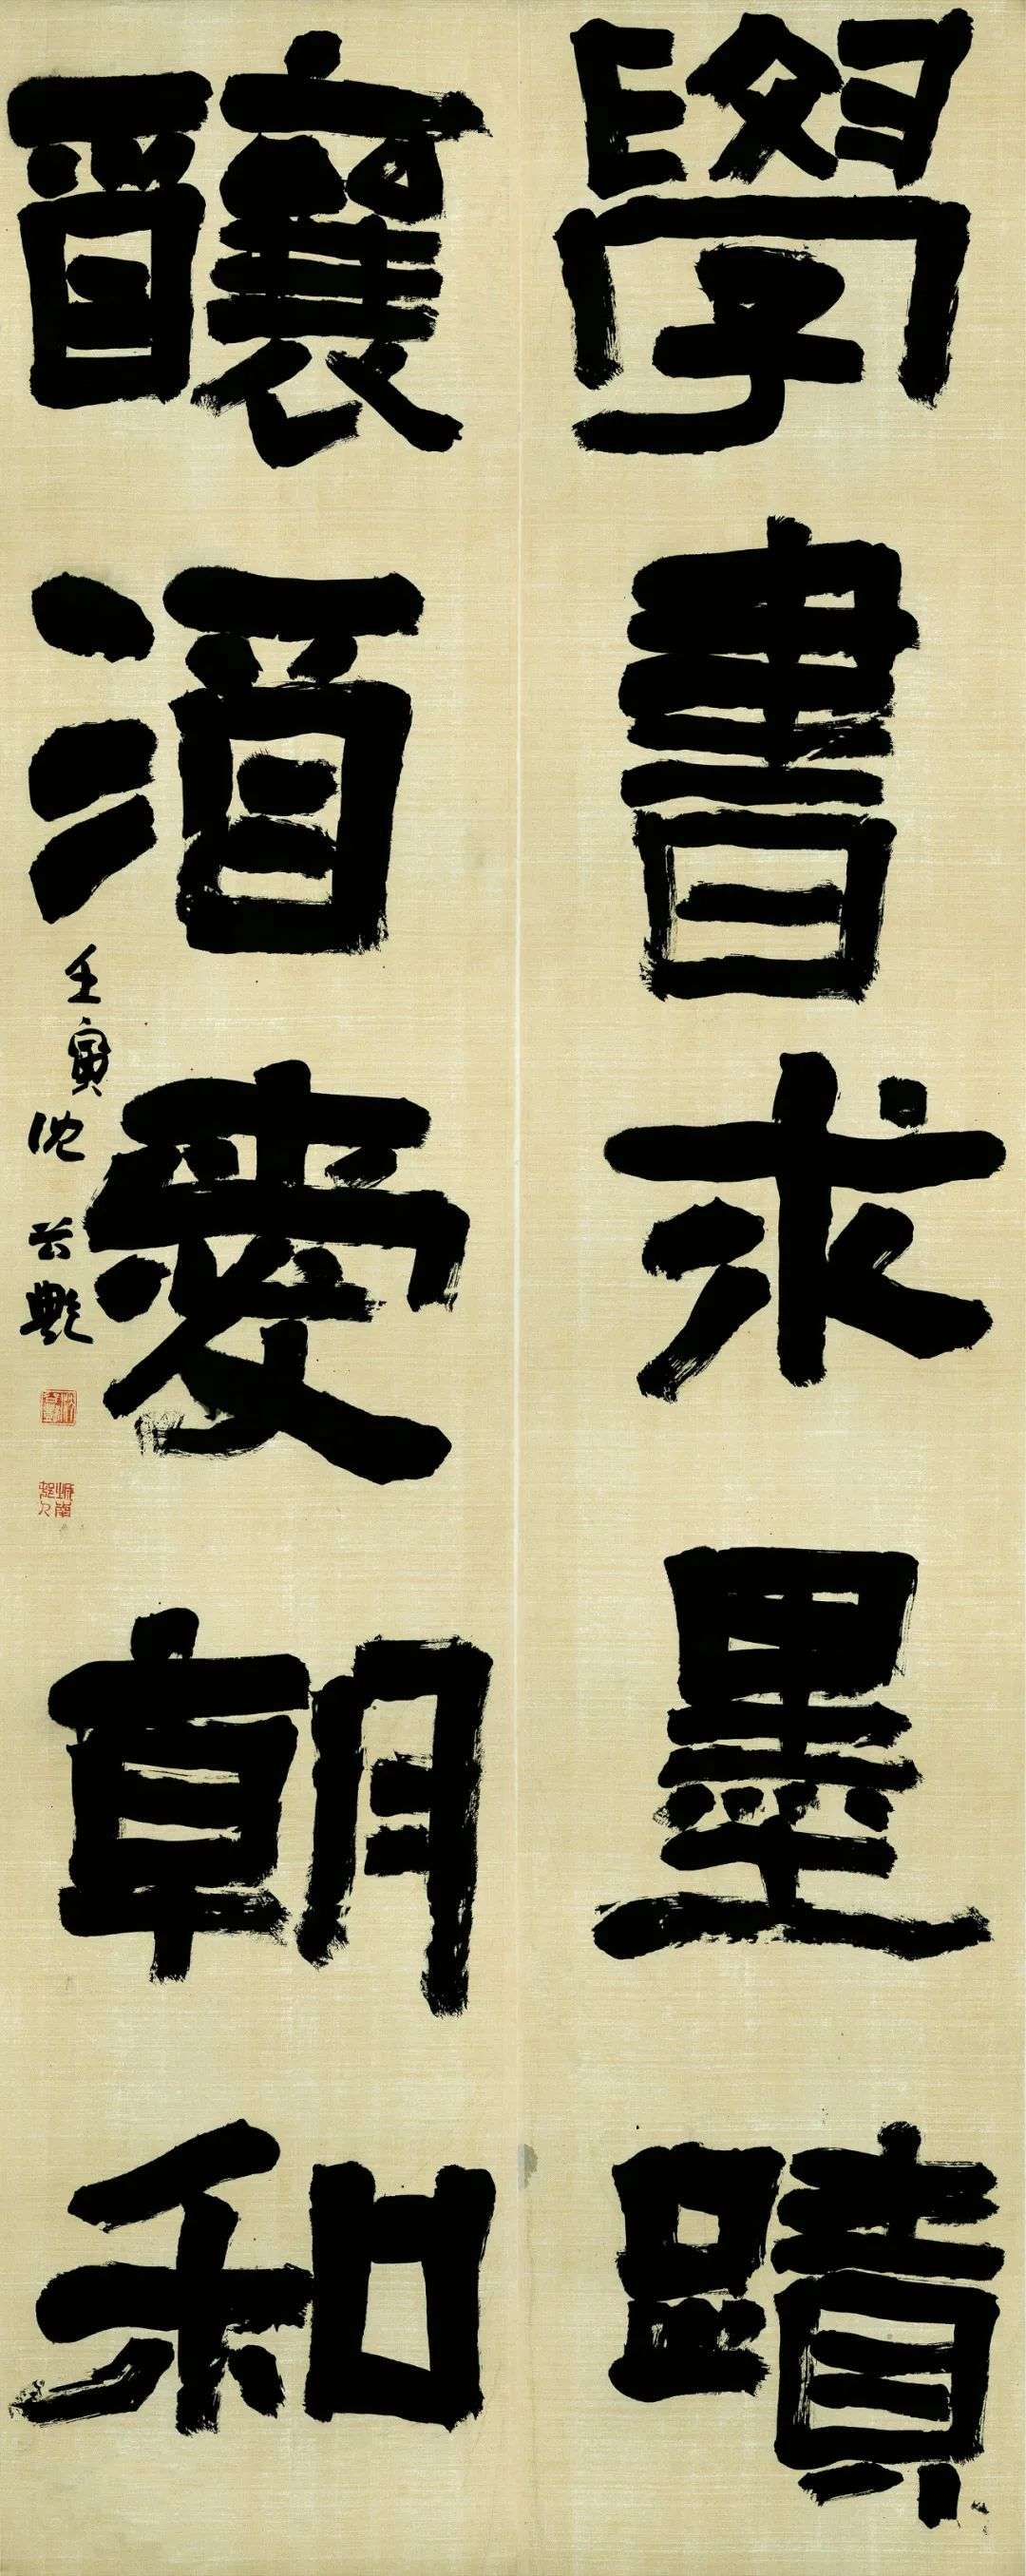 學書求墨蹟
釀酒愛朝和
壬寅沈公艷